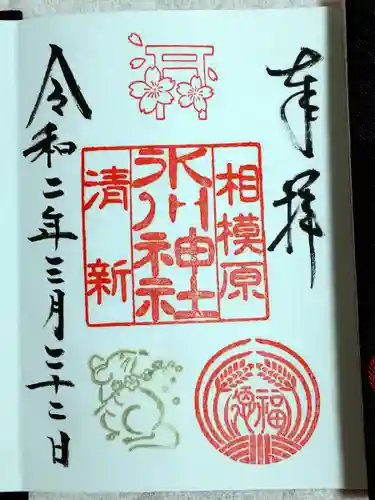 奉拝
相模原
氷川神社
清新
令和二年三月二十二日
福徳